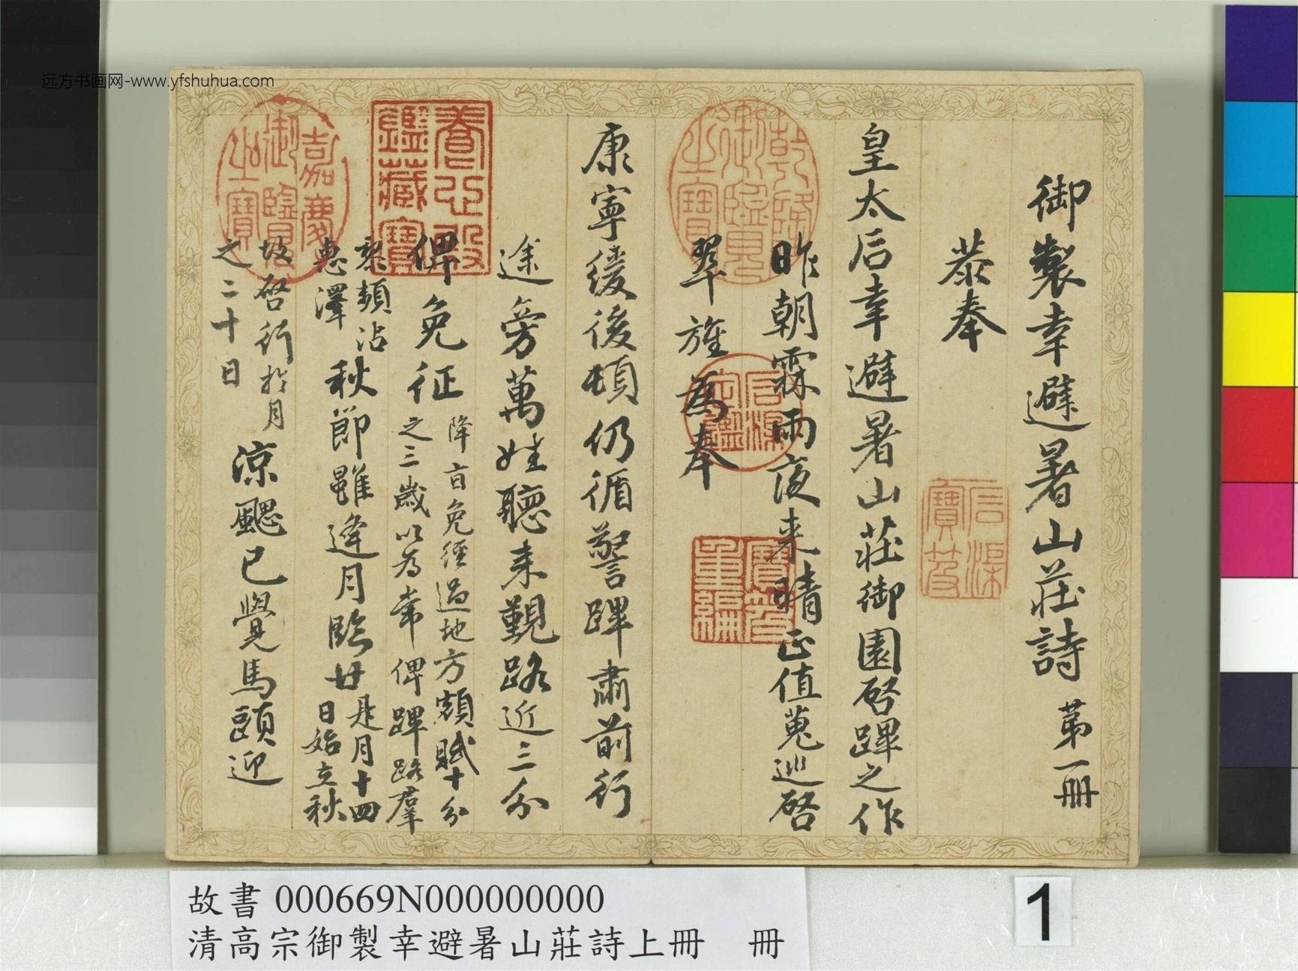 远方书画网-www.yfshuhua.com
御製幸避暑山莊詩 第一冊
石渠寶笈
恭奉
皇太后幸避暑山莊御園啓蹕之作
乾隆御覽之寶
昨朝霖雨夜来晴正值蒐巡啓
石渠定鑑
寶笈重編
翠旌為奉
康寧緩後頓仍循警蹕肅前行
途旁萬姓聽来覲路近三分
養心殿鑑藏寶
俾免征 降旨免經過地方額賦十分
之三歲以為常俾蹕路群
黎頻沾
惠澤 秋節雖逢月臨廿 是月十四
日始立秋
嘉慶御覽之寶
故啓行於月
之二十日 涼颸已覺馬頭迎
故書 000669N000000000
清高宗御製幸避暑山莊詩上冊 冊
1